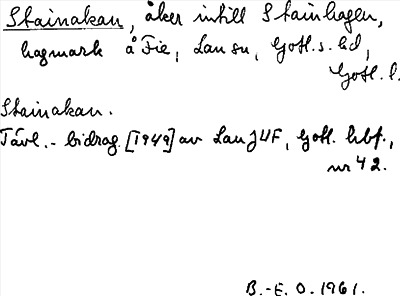 Stainakan, åker intill Stainhagen,
hagmark å Fie, Lau sn, Gotl. s. hd,
Gotl. l.
Stainakan.
Tävl.-bidrag [1949] av Lau JUF, Gotl. hbf.,
nr 42.
B.-E. O. 1961.